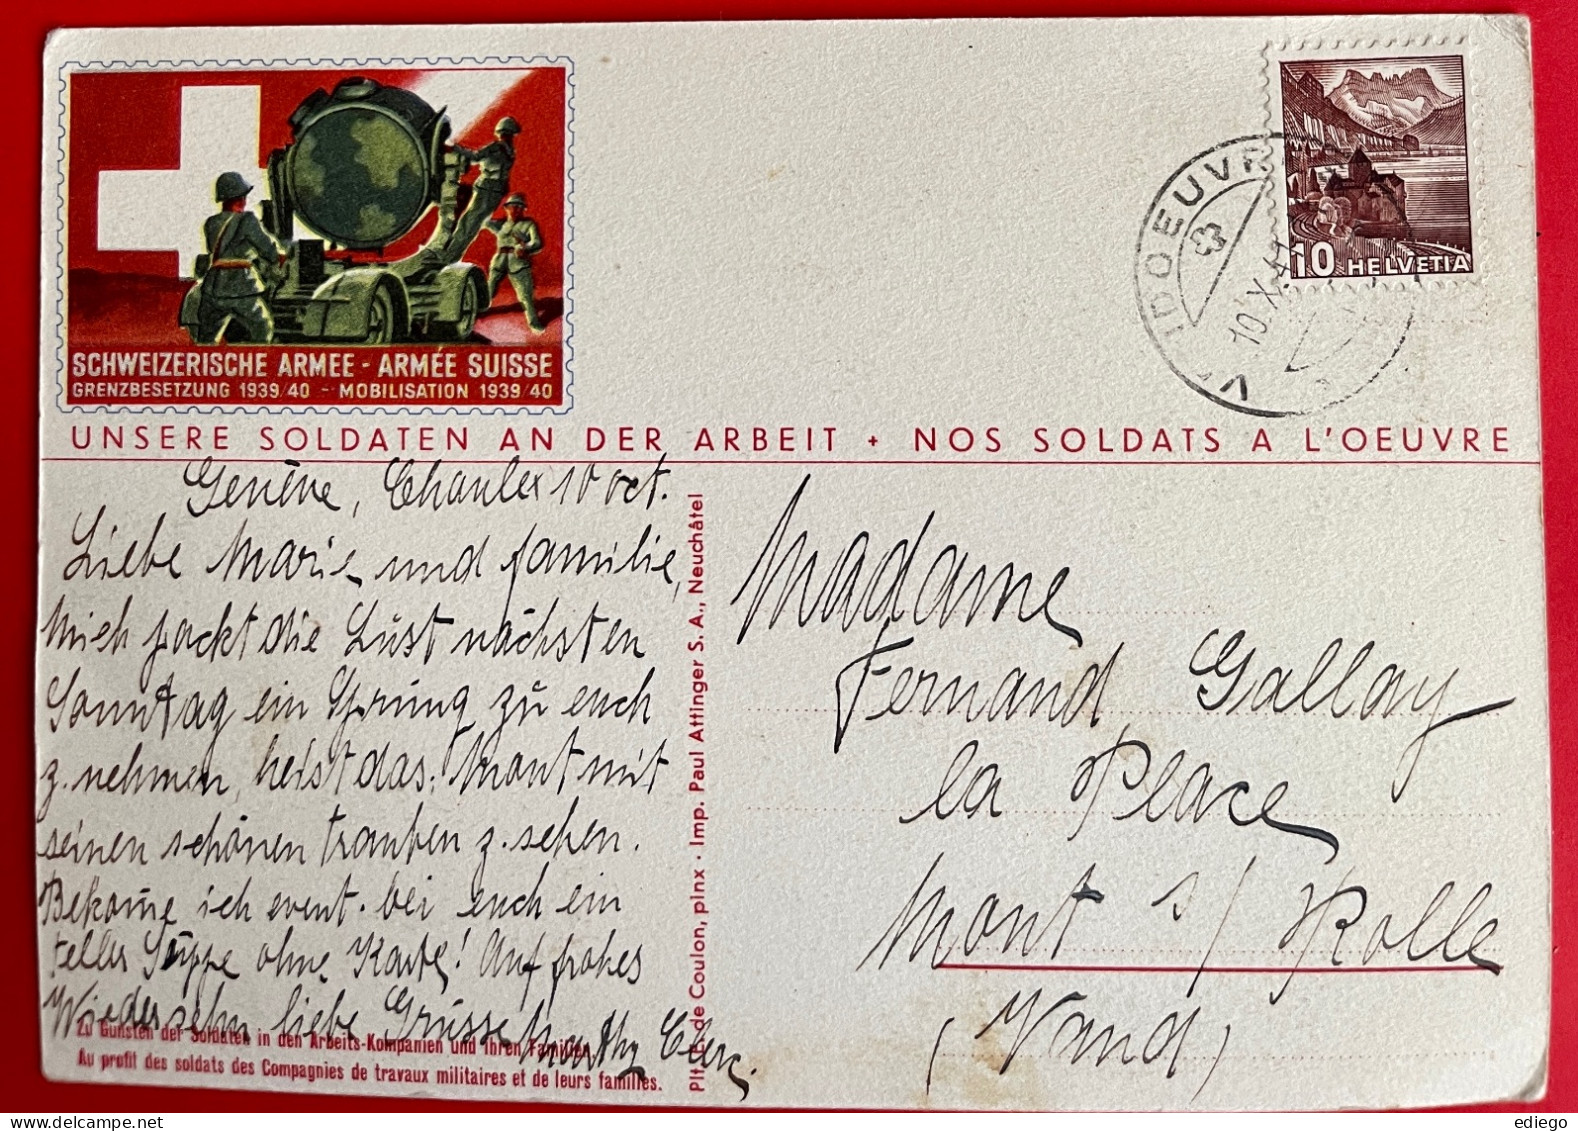 SCHWEIZERISCHE ARMEE - ARMÉE SUISSE
GRENZBESETZUNG 1939/40 - MOBILISATION 1939/40
10 HELVETIA
10.X.42
UNSERE SOLDATEN AN DER ARBEIT + NOS SOLDATS A L'OEUVRE
Genève, Choulex 10 oct.
Liebe Marie und familie,
Mich packt die Lust nächsten
Sonntag ein Sprung zu euch
z. nehmen, heist das: Mont mit
seinen schönen trauben z. sehen.
Bekome ich event. bei euch ein
teller Suppe ohne Karte! Auf frohes
Wiedersehn liebe Grüsse Marthy Clerc.
Zu Gunsten der Soldaten in den Arbeits-Kompanien und ihren Familien.
Au profit des soldats des Compagnies de travaux militaires et de leurs familles.
de Coulon, pinx · Imp. Paul Attinger S. A., Neuchâtel
Madame
Fernand Gallay
la Place
Mont s/ Rolle
(Vaud)
ediego - delcampe.net